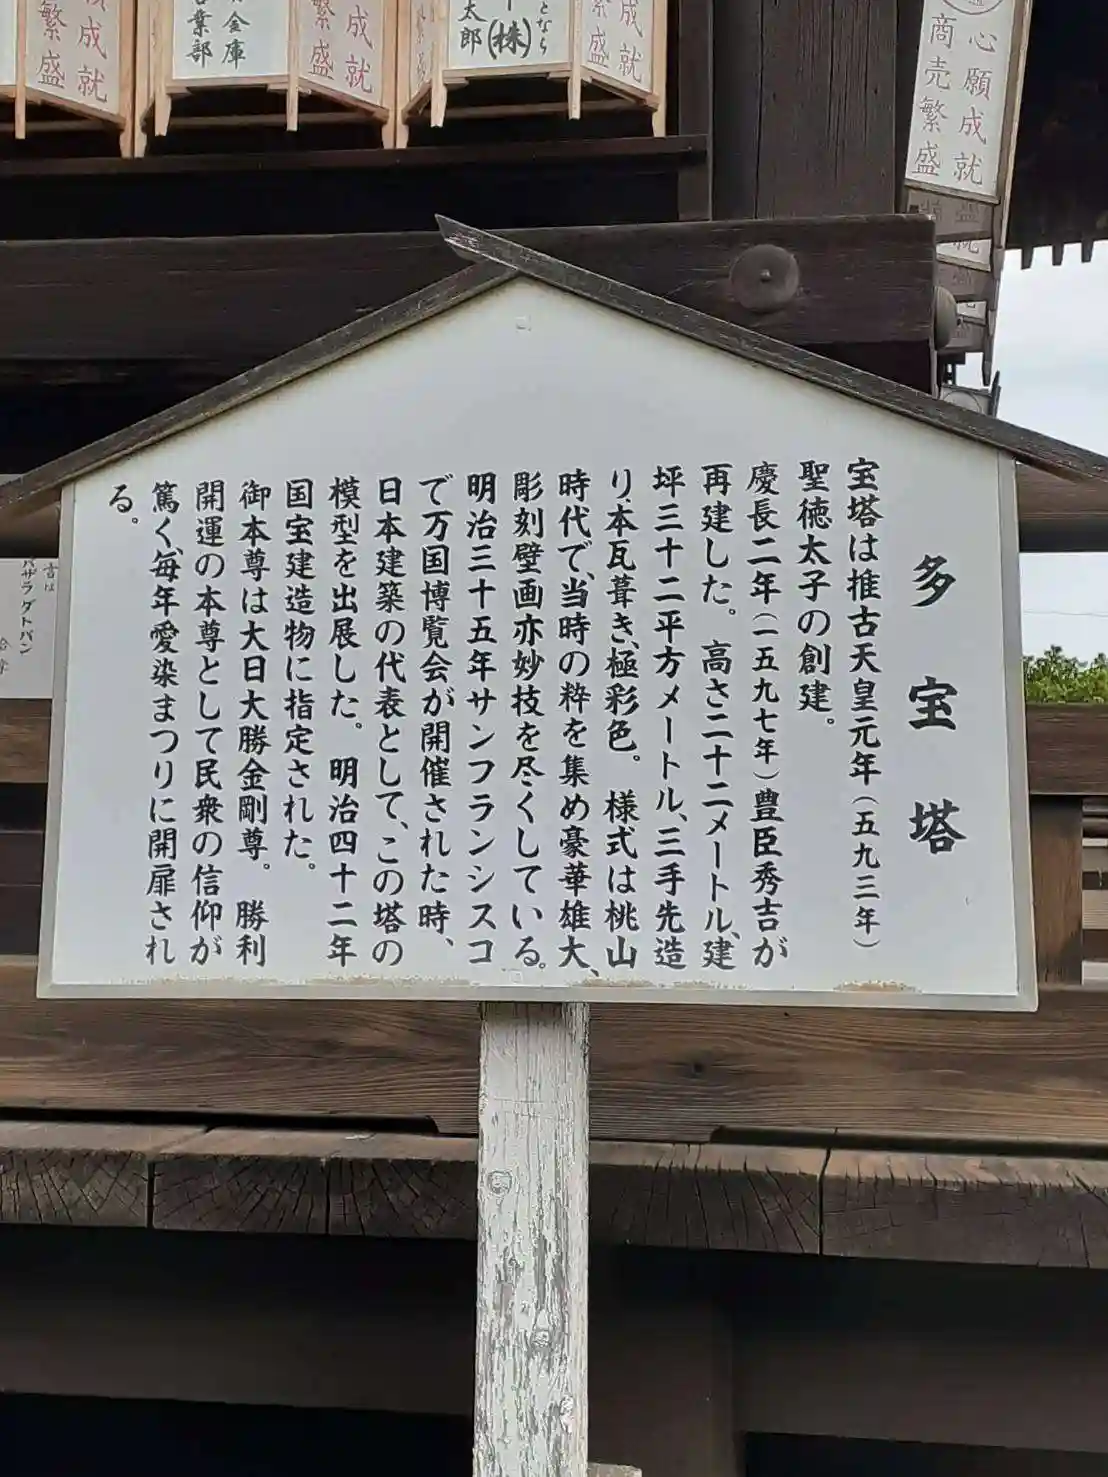 多宝塔
宝塔は推古天皇元年(五九三年)
聖徳太子の創建。
慶長二年(一五九七年)豊臣秀吉が
再建した。高さ二十二メートル、建
坪三十二平方メートル、三手先造
り、本瓦葺き、極彩色。様式は桃山
時代で、当時の粋を集め豪華雄大、
彫刻壁画亦妙技を尽くしている。
明治三十五年サンフランシスコ
で万国博覧会が開催された時、
日本建築の代表として、この塔の
模型を出展した。明治四十二年
国宝建造物に指定された。
御本尊は大日大勝金剛尊。勝利
開運の本尊として民衆の信仰が
篤く、毎年愛染まつりに開扉され
る。
心願成就
商売繁盛
となら
(株)
太郎
金庫
営業部
成就
繁盛
願成就
繁盛
成就
繁盛
バザラ ダトバン